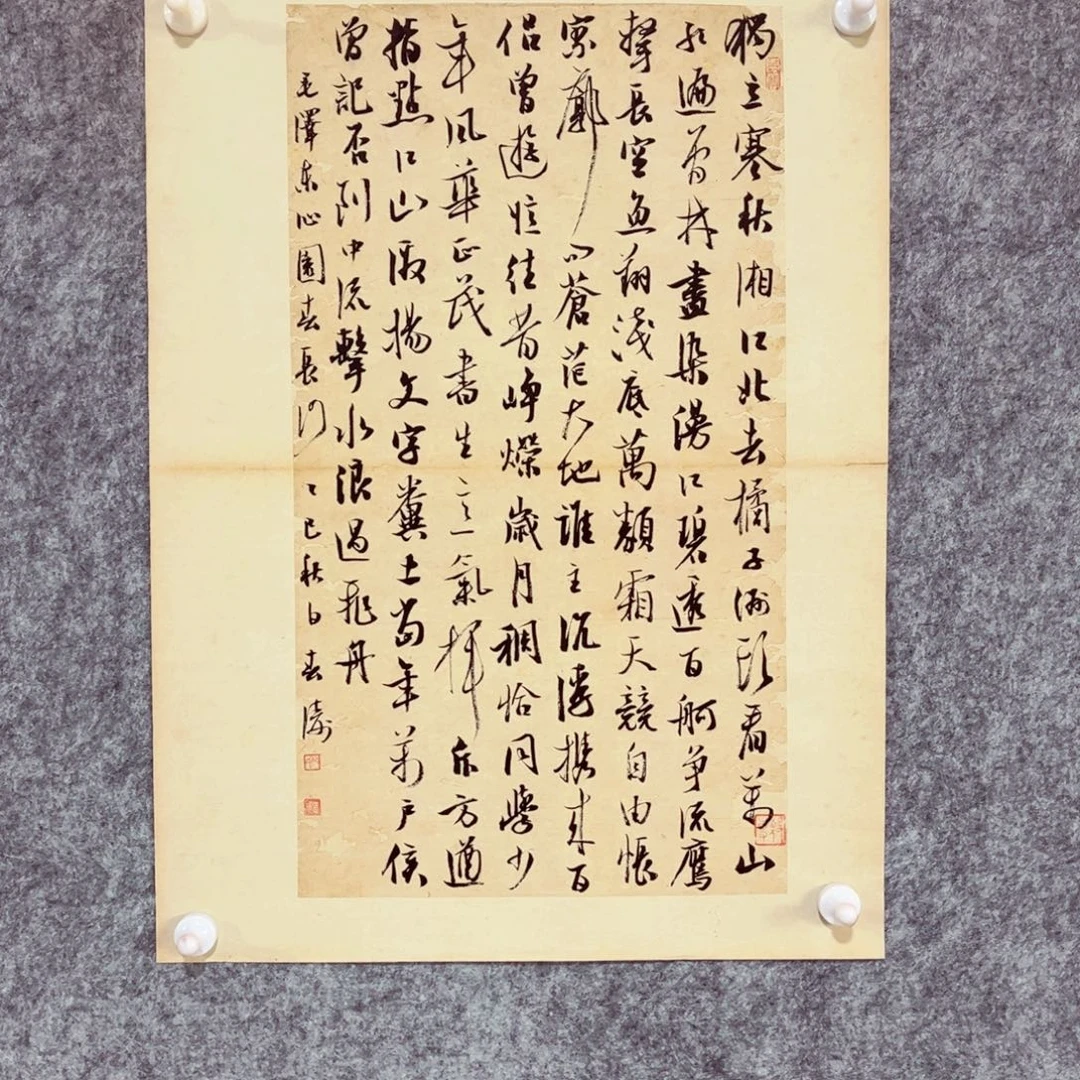 獨立寒秋湘江北去橘子洲頭看萬山
紅遍層林盡染漫江碧透百舸爭流鷹
擊長空魚翔淺底萬類霜天競自由悵
寥廓问蒼茫大地誰主沉浮攜來百
侣曾遊憶往昔崢嶸歲月稠恰同學少
年風華正茂書生意氣揮斥方遒
指點江山激揚文字糞土當年萬戶侯
曾記否到中流擊水浪遏飛舟
毛澤東沁園春長沙乙巳秋日春濤